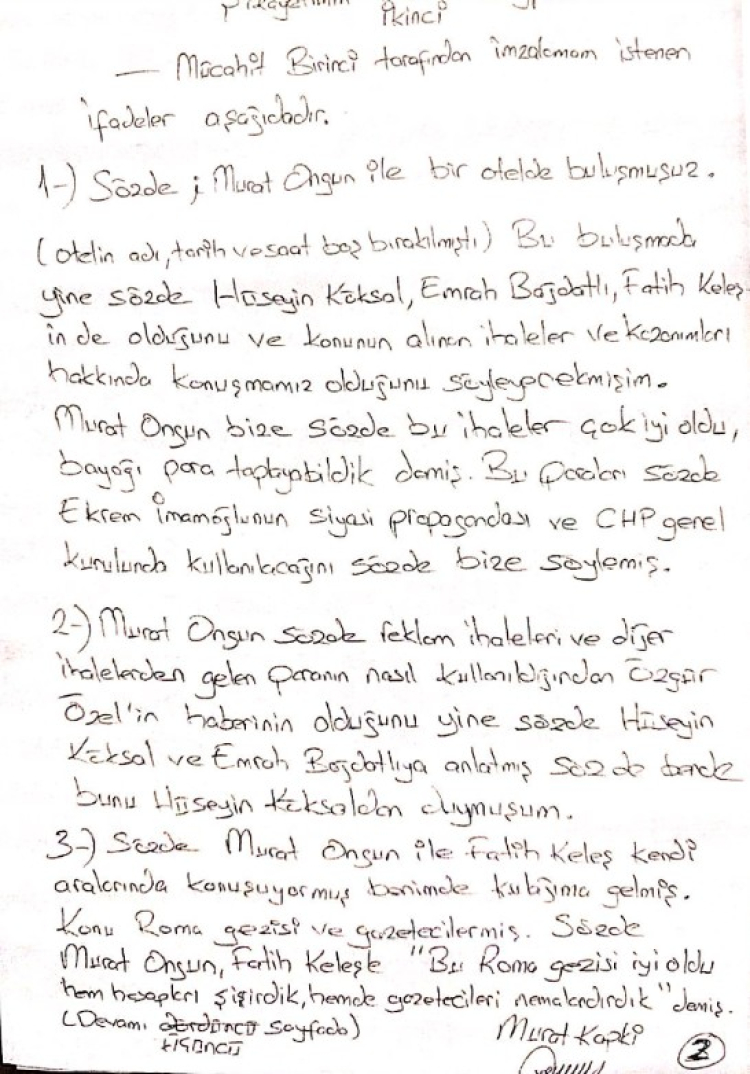 İkinci
— Mücahit Birinci tarafından imzalamam istenen
ifadeler aşağıdadır.
1-) Sözde ; Murat Ongun ile bir otelde buluşmuşuz.
(otelin adı, tarih ve saat boş bırakılmıştı) Bu buluşmada
yine sözde Hüseyin Köksal, Emrah Bağdatlı, Fatih Keleş
in de olduğunu ve konunun alınan ihaleler ve kazanımları
hakkında konuşmamız olduğunu söyleyecekmişim.
Murat Ongun bize sözde bu ihaleler çok iyi oldu,
bayağı para toplayabildik demiş. Bu paraları sözde
Ekrem İmamoğlunun siyasi propagandası ve CHP genel
kurulunda kullanılacağını sözde bize söylemiş.
2-) Murat Ongun sözde reklam ihaleleri ve diğer
ihalelerden gelen paranın nasıl kullanıldığından Özgür
Özel'in haberinin olduğunu yine sözde Hüseyin
Köksal ve Emrah Bağdatlıya anlatmış sözde bende
bunu Hüseyin Köksaldan duymuşum.
3-) Sözde Murat Ongun ile Fatih Keleş kendi
aralarında konuşuyormuş benimde kulağıma gelmiş.
Konu Roma gezisi ve gazetecilermiş. Sözde
Murat Ongun, Fatih Keleşle "Bu Roma gezisi iyi oldu
hem hesapları şişirdik, hemde gazetecileri nemalandırdık" demiş.
(Devamı dördüncü sayfada) Murat Kapki
üçüncü 2